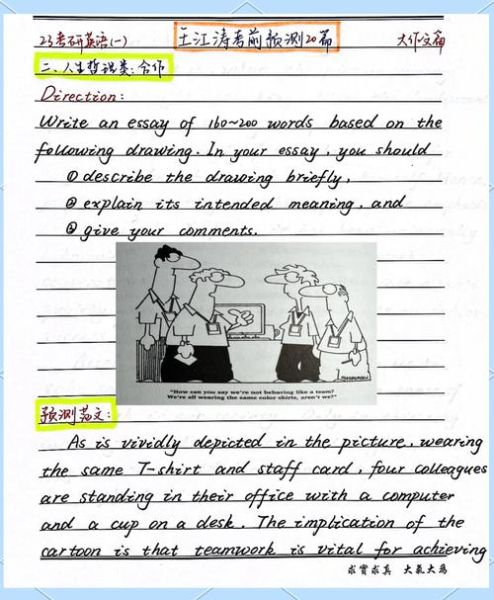 23考研英语(一) 王江涛考前预测20篇 大作文篇
二、人生哲理类：合作
Direction:
Write an essay of 160~200 words based on the
following drawing. In your essay, you should
① describe the drawing briefly,
② explain its intended meaning, and
③ give your comments.
"How can you say we're not behaving like a team?
We're all wearing the same color shirts, aren't we?"
预测范文：
As is vividly depicted in the picture, wearing
the same T-shirt and staff card, four colleagues
are standing in their office with a computer
and a cup on a desk. The implication of the
cartoon is that teamwork is vital for achieving
求实求真 大气大为